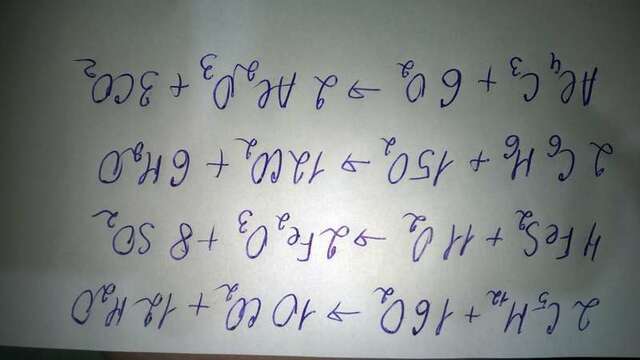 2C₅H₁₂ + 16O₂ → 10CO₂ + 12H₂O
4FeS₂ + 11O₂ → 2Fe₂O₃ + 8SO₂
2C₆H₆ + 15O₂ → 12CO₂ + 6H₂O
Al₄C₃ + 6O₂ → 2Al₂O₃ + 3CO₂